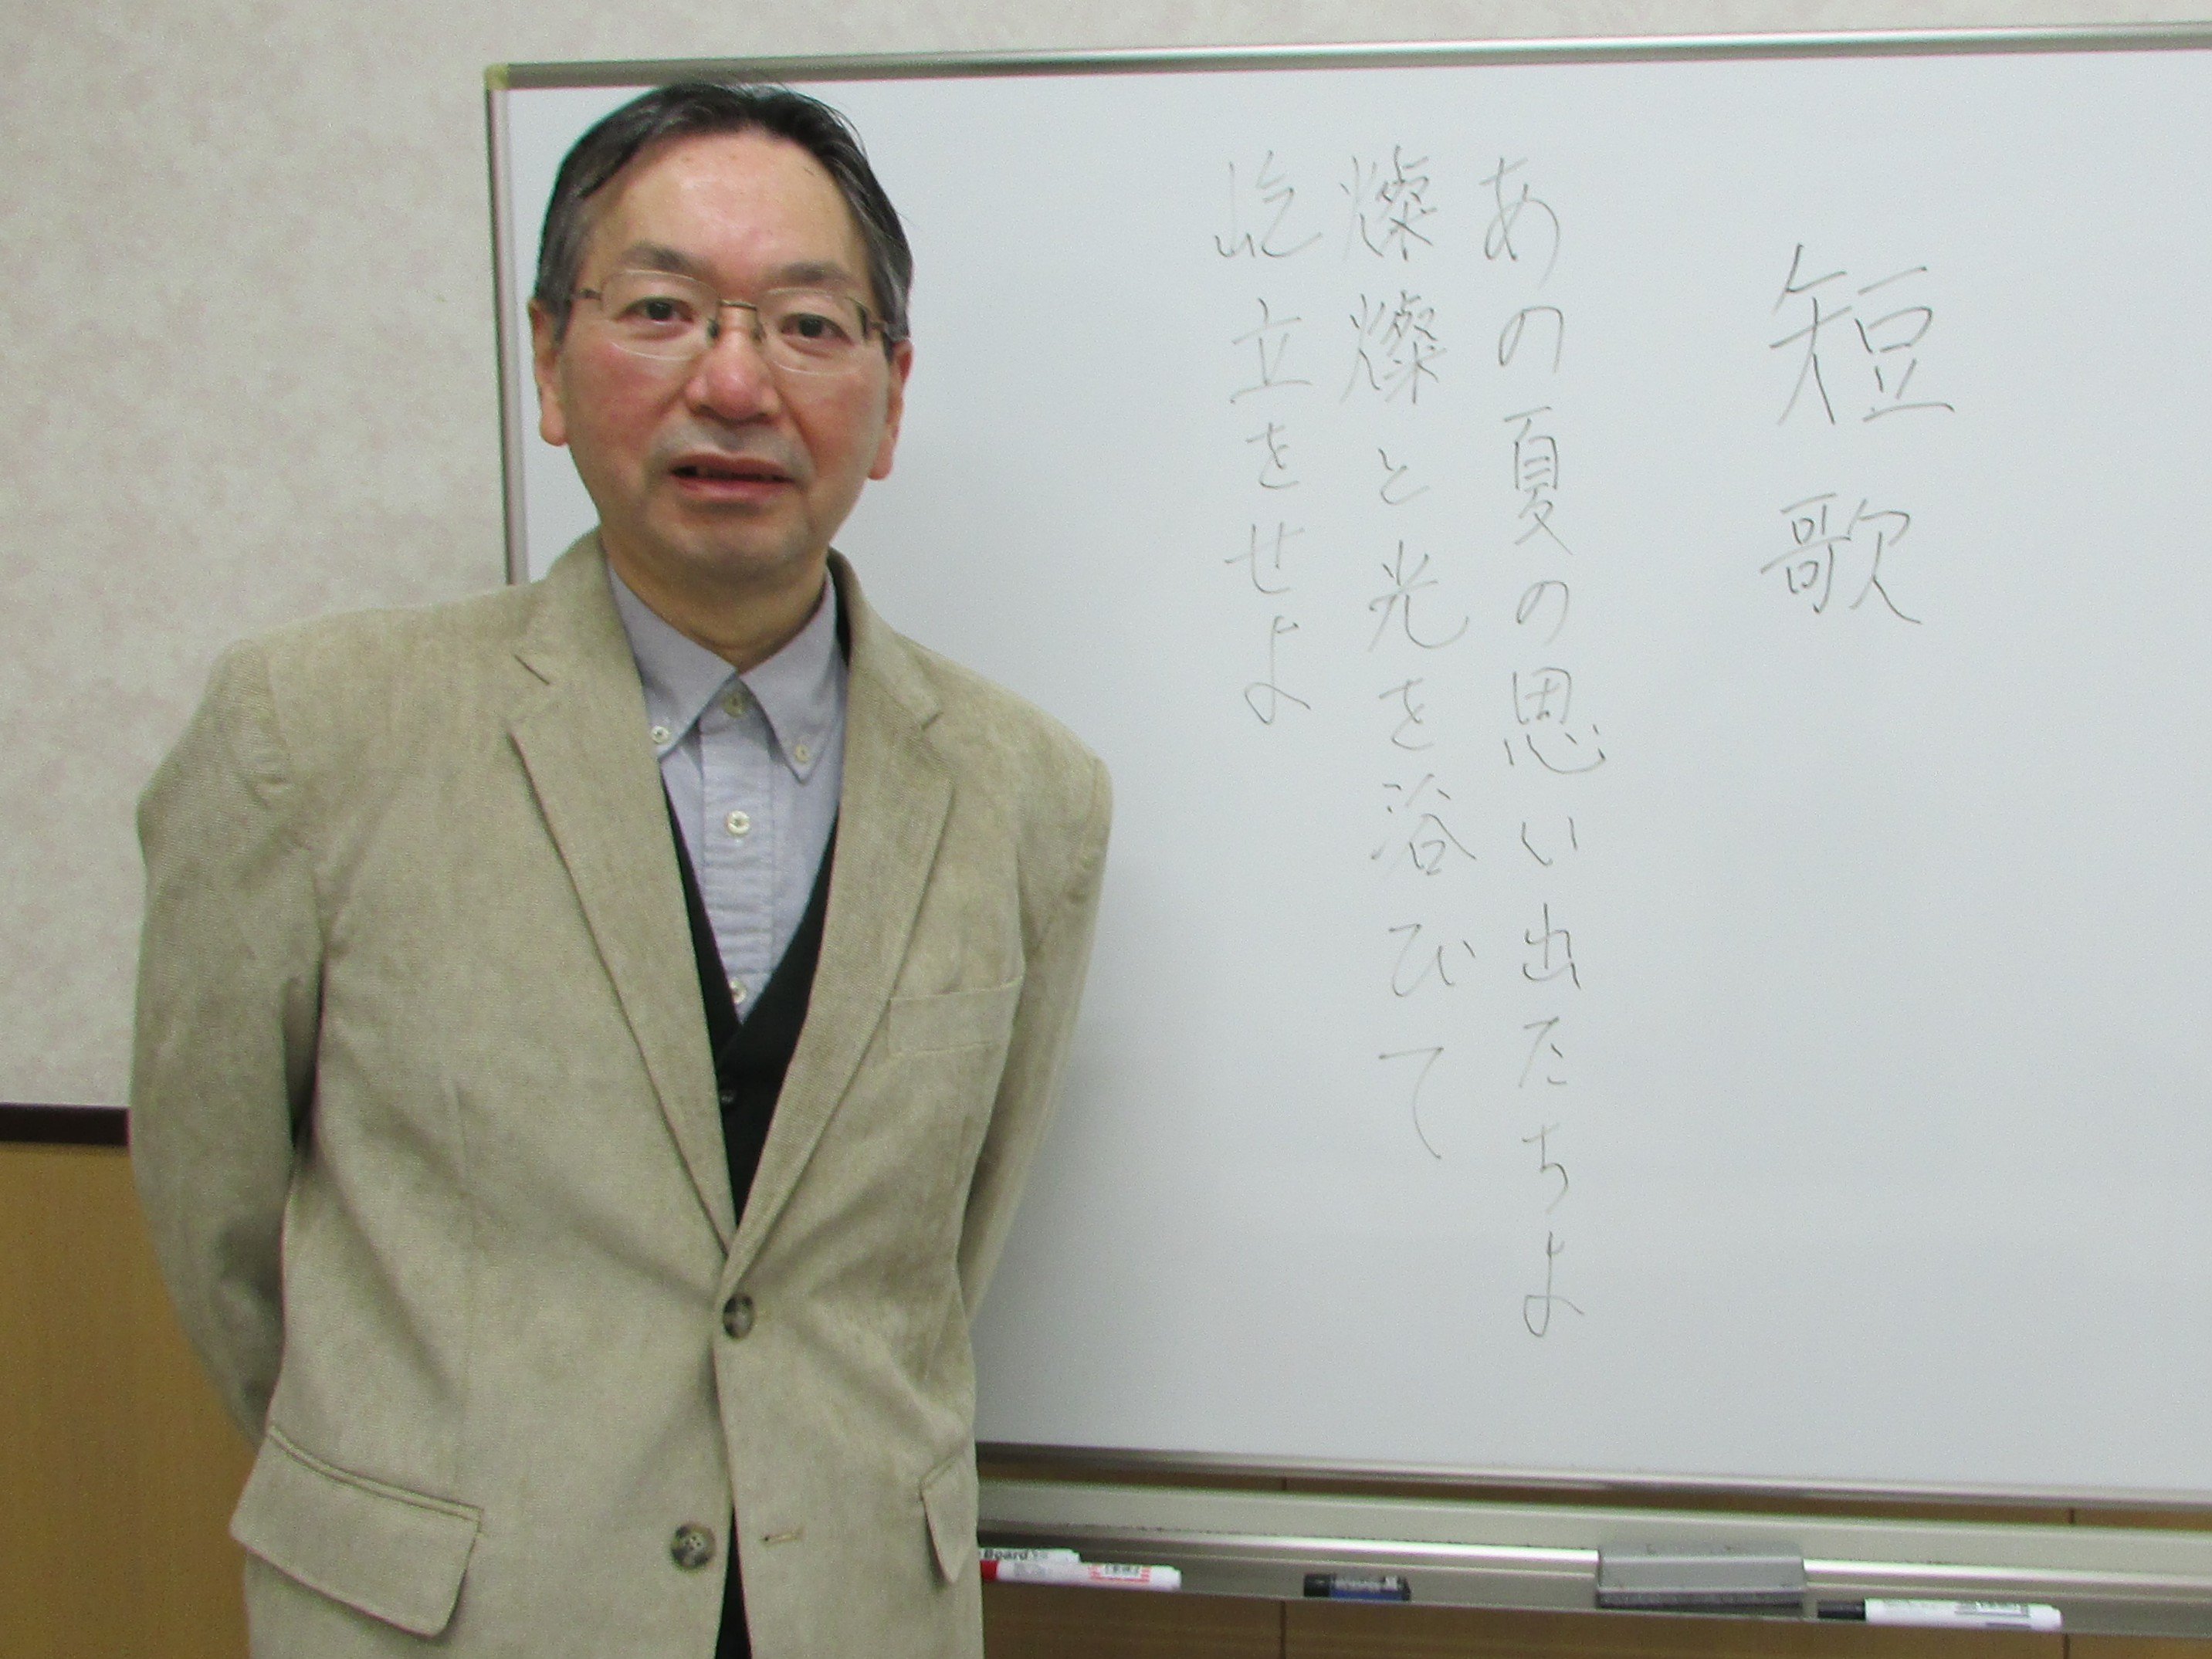 短歌
あの夏の思い出たちよ
燦燦と光を浴びて
屹立をせよ
Board